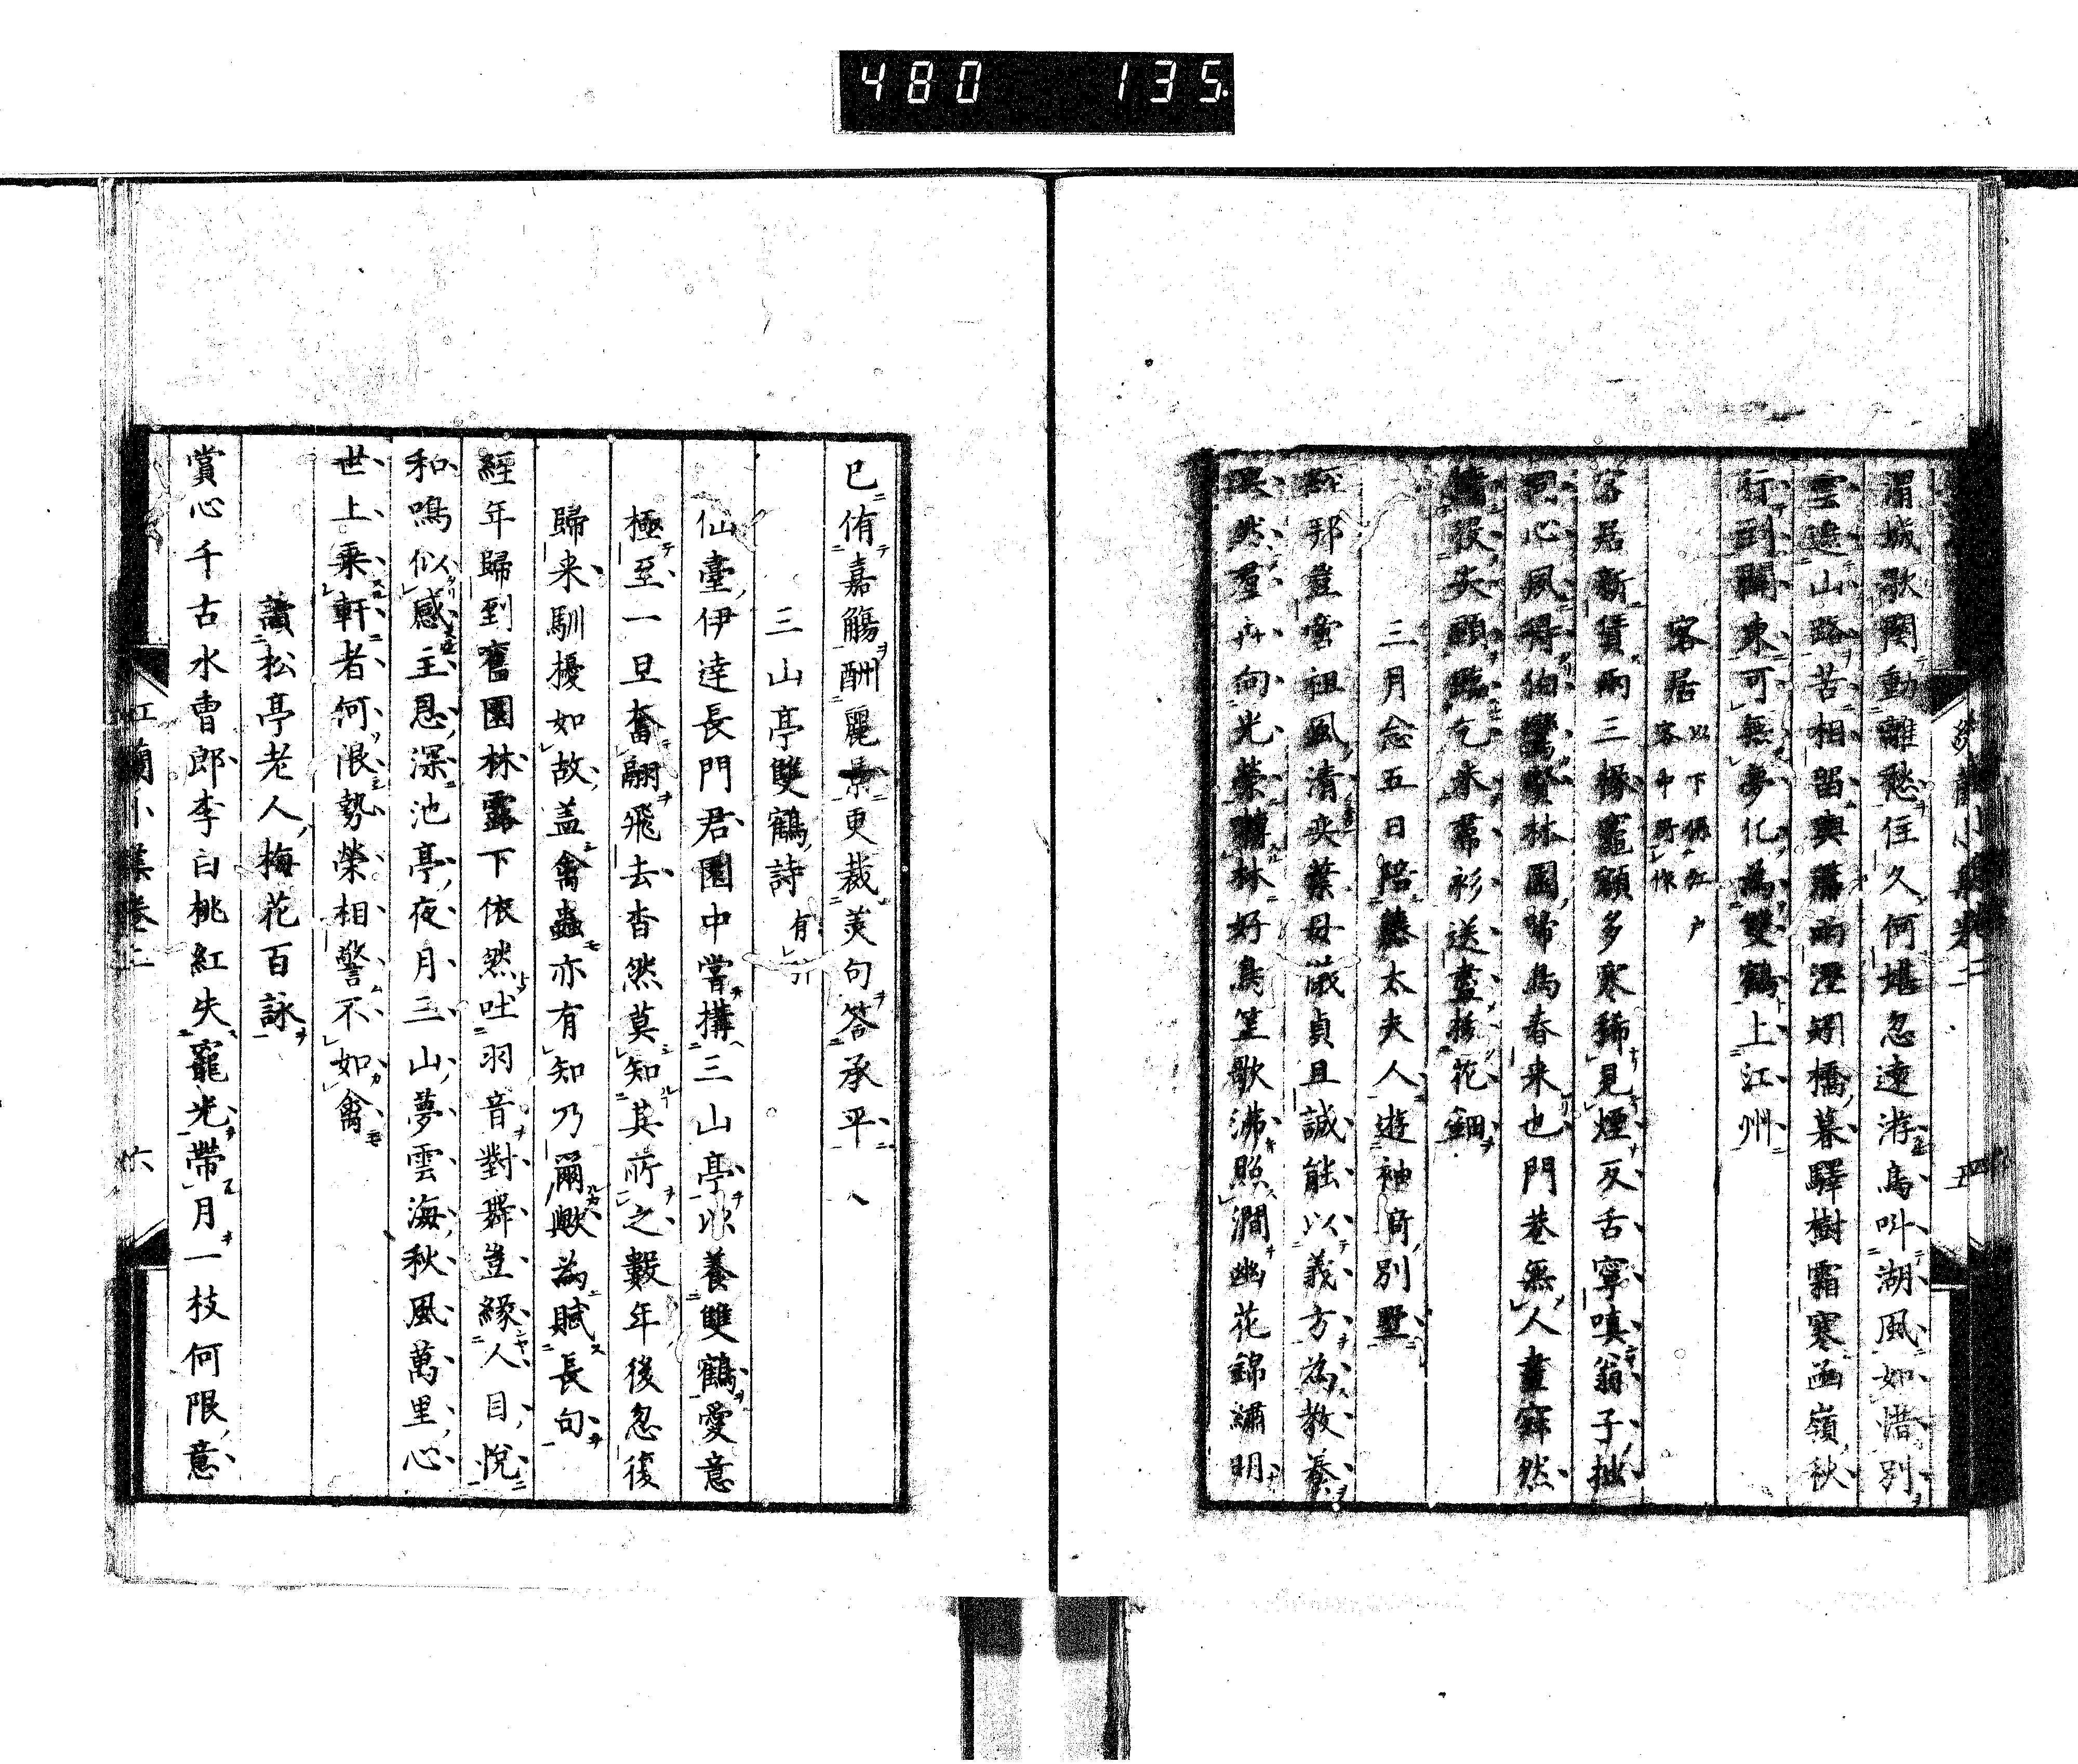 480 135.
渭城歌闋動離愁住久何堪忽遠游鳥叫湖風如惜別
雲遮山路苦相留輿簷雨溼刀橋暮驛樹霜寒函嶺秋
行到關東可無夢化為雙鶴上江州
客居 以下係江戶客中所作
客居新賃兩三椽竈額多寒稀見煙反舌寧嗔翁子拙
心風得伯鸞賢林園啼鳥春來也門巷無人晝寐然
三月念五日陪藤太夫人遊袖𠩄別墅
邦豈啻祖風清奕葉母儀貞且誠能以義方為教養
然羣向光榮林好鳥笙歌沸照澗幽花錦繡明
已侑嘉觴酬麗景更裁美句答承平
三山亭雙鶴詩 有引
仙臺伊達長門君園中嘗搆三山亭以養雙鶴愛意
極至一旦奮翮飛去杳然莫知其所之數年後忽復
歸来馴擾如故盖禽蟲亦有知乃爾歟為賦長句
經年歸到舊園林露下依然吐羽音對舞豈緣人目悅
和鳴似感主恩深池亭夜月三山夢雲海秋風萬里心
世上乘軒者何限勢榮相警不如禽
讀松亭老人梅花百詠
賞心千古水曹郎李白桃紅失寵光帶月一枝何限意
紅蘭小集卷二 六